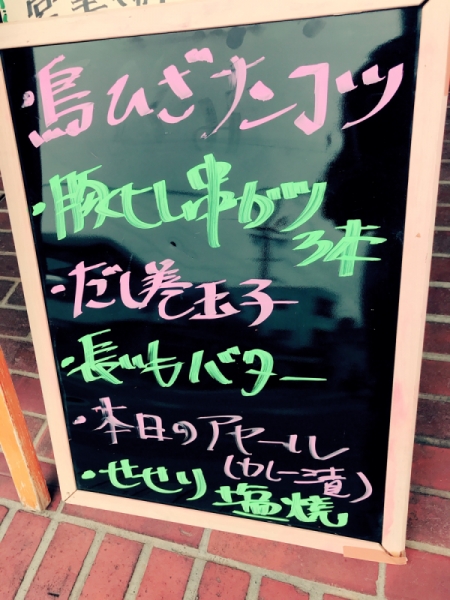 ・鳥ひざナンコツ
・豚ヒレ串カツ
3本
・だし巻玉子
・長いもバター
・本日のアヤール
(カレー漬)
・せせり塩焼